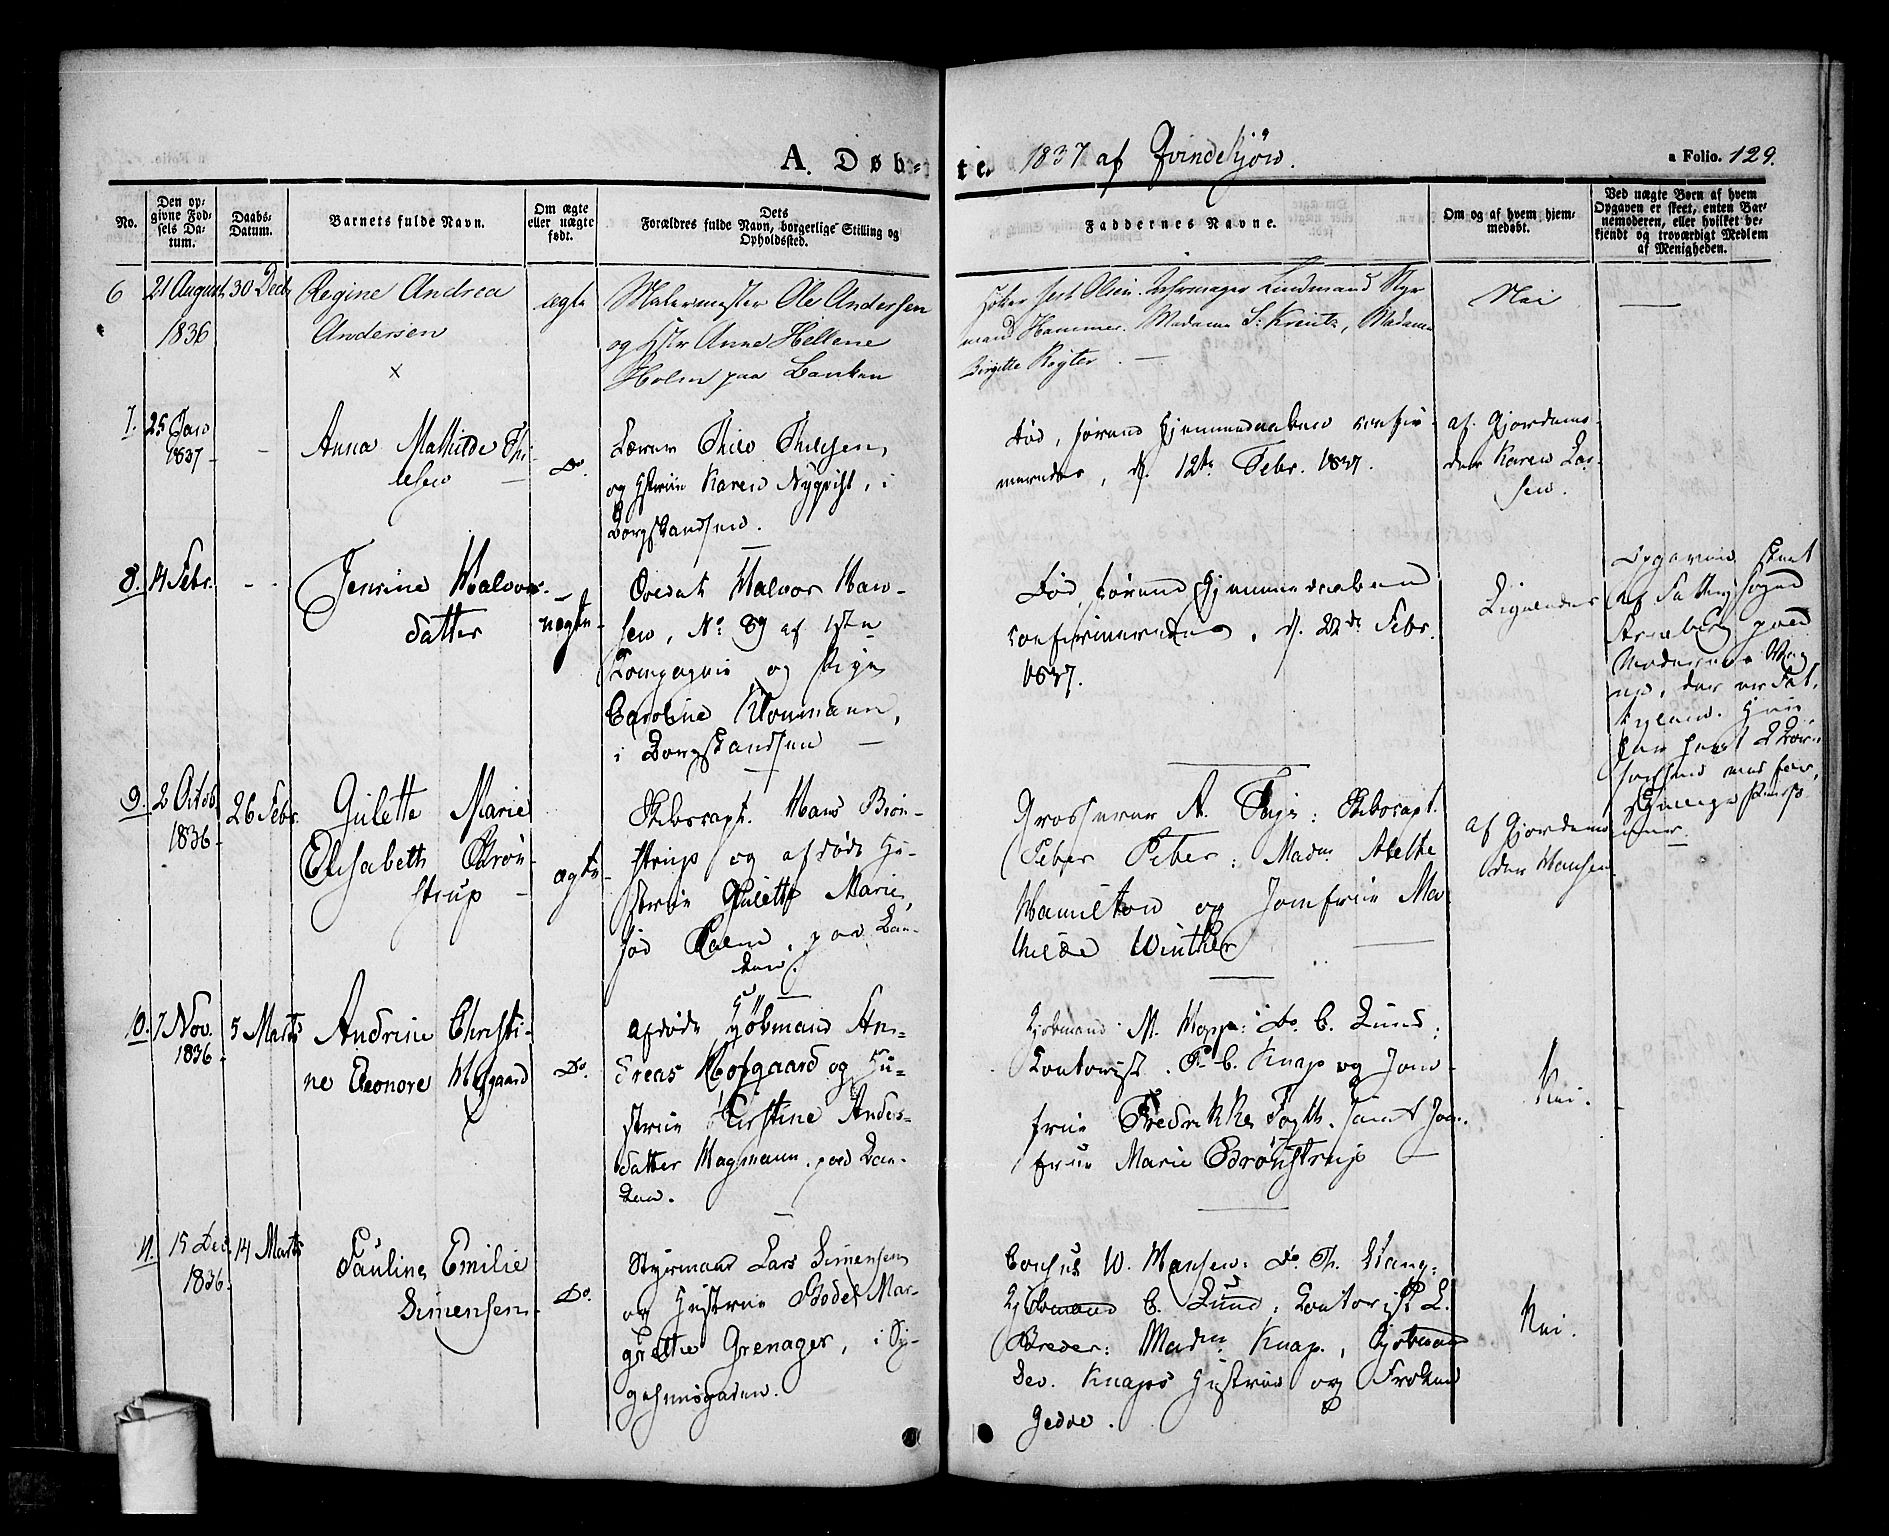 A. Døb-
te. 1837 af Qvindekjøn.
a Folio. 129.
No.
Den op-
givne Fød-
sels Da-
tum.
Daabs-
Datum.
Barnets fulde Navn.
Om ægte
eller uægte
født.
Forældres fulde Navn, Dets borgerlige Stilling og
Opholdssted.
Faddernes Navne.
Om og af hvem hjem-
medøbt.
Ved uægte Børn af hvem
Opgaven er skeet, enten Bar-
nemoderen, eller hvilket be-
kjendt og troværdigt Medlem
af Menigheden.
6
21 August
1836
30 Decb
Regine Andrea
Andersen
×
ægte
Malermester Ole Andersen
og Hstr Anne Hellene
Holm paa Banken
Olsen. Lindmand Styr
mand Hammer. Madame S. Kreutz, Madame
Birgitte Rogter.
Nei
7.
25 Janv
1837
Anna Mathilde Thi-
lesen
Do.
Lærer Thilo Thilesen,
og Hstrue Karen Nyqvist, i
Borgskandsen.
død, førend Hjemmedaaben confir-
meredes, d. 12te Febr. 1837.
af Gjordemo-
der Karen Las-
sen.
8.
14 Febr.
Jensine Halvors-
datter
uægte
Soldat Halvor Han-
sen, No 89 af 1ste
Compagnie og Pige
Caroline Kloumann,
i Borgskandsen
Død, førend Hjemmedaaben
confirmeredes, d. 22de Febr.
1837.
Ligeledes
Opgaven skeet
af Fattigfoged
Steenberg paa
Moderens Veg-
ne,
9.
2 Octob.
1836
26 Febr.
Gulette Marie
Elisabeth Brøn-
strup
ægte
Skibscapt. Hans Brøn-
strup og afdøde Hu-
strue Gulette Marie,
fød Palm, paa Ban-
ken.
Grosserer A. Skibscapt.
Peter Peter: Madm Alethe
Hamilton og Jomfrue Ma-
thilde Winther
af Gjordemo-
der Hansen
10.
7 Nov.
1836
5 Marts
Andrine Christi-
ne Eleonore Hofgaard
Do.
afdøde Kjøbmand An-
dreas Hofgaard og Hu-
strue Kirstine Anders-
datter Wagmann, paa Ban-
ken.
Kjøbmand M. Hopp: Do. C. Lund:
Contorist P. C. Knap og Jom-
frue Fredrikke Fogth. samt Jom-
frue Marie Brønstrup
Nei.
11.
15 Dec.
1836
14 Marts
Pauline Emilie
Simensen
Do.
Styrmand Lars Simensen
og Hustrue Bodel Mar-
grethe Grenager, i Sy-
gehuusgaden.
Consul W. Hansen: Do. Th. Stang:
Kjøbmand C. Lund: Contorist L.
Breder: Madm Knap, Kjøbmand
Dev. Knaps Hustrue og Frøken
Gedde.
Nei.